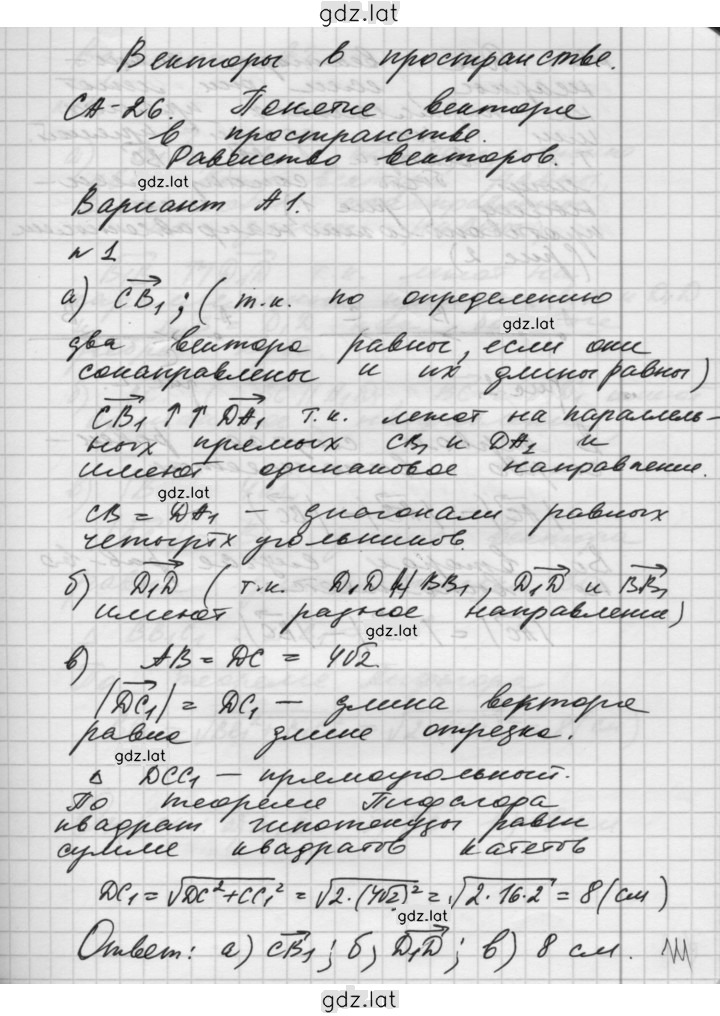 gdz.lat
Векторы в пространстве.
СА-26. Понятие вектора
в пространстве.
Равенство векторов.
gdz.lat
Вариант А1.
№1
а) CB₁; (т.к. по определению
gdz.lat
два вектора равны, если они
сонаправлены и их длины равны)
CB₁ ↑↑ DA₁ т.к. лежат на параллель-
ных прямых CB₁ и DA₁ и
имеют одинаковое направление.
gdz.lat
CB = DA₁ — диагонали равных
четырёх угольников.
б) D₁D (т.к. D₁D ∦ BB₁, D₁D и BB₁
имеют разное направления)
gdz.lat
в) AB = DC = 4√2
|DC₁| = DC₁ — длина вектора
равна длине отрезка.
gdz.lat
Δ DCC₁ — прямоугольный.
По теореме Пифагора
квадрат гипотенузы равен
сумме квадратов катетов
DC₁ = √DC²+CC₁² = √2·(4√2)² = √2·16·2 = 8 (см)
gdz.lat
Ответ: а) CB₁; б) D₁D; в) 8 см.
gdz.lat